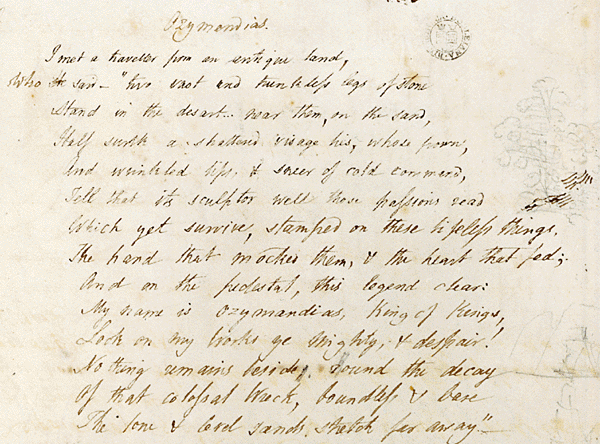 Ozymandias.
I met a traveller from an antique land,
Who said — "two vast and trunkless legs of stone
Stand in the desart... near them, on the sand,
Half sunk a shattered visage lies, whose frown,
And wrinkled lips, & sneer of cold command,
Tell that its sculptor well those passions read
Which yet survive, stamped on these lifeless things,
The hand that mocked them, & the heart that fed;
And on the pedestal, this legend clear:
My name is Ozymandias, King of Kings,
Look on my Works ye Mighty, & despair!
No thing remains beside. Round the decay
Of that colossal Wreck, boundless & bare
The lone & level sands stretch far away."—